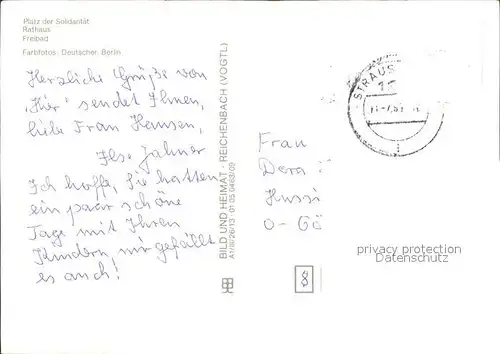 Platz der Solidarität
Rathaus
Freibad
Farbfotos: Deutscher, Berlin
Herzliche Grüße von
"Hier" sendet Ihnen,
liebe Frau Hensen,
Ilse Jahner
Ich hoffe, Sie hatten
ein paar schöne
Tage mit Ihren
Kindern, mir gefällt
es auch!
BILD UND HEIMAT · REICHENBACH (VOGTL)
STRAUS
Frau
Dora
Hussi
O-Gö
8
privacy protection
Datenschutz